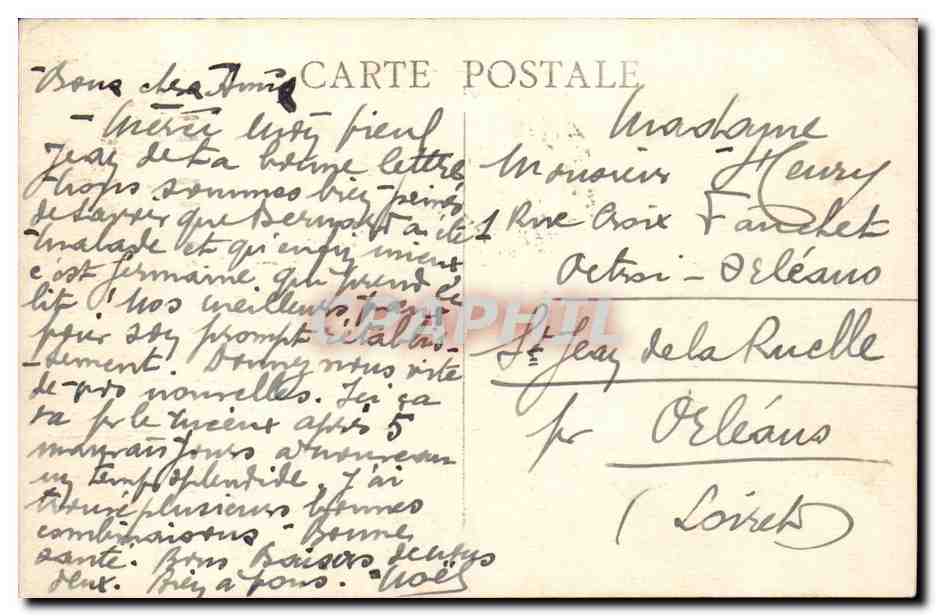 CARTE POSTALE
Bons chers Amis
- Merci mon vieux
Jean de ta bonne lettre
Nous sommes bien peinés
de savoir que Bernard a été
malade et qu'enfin mieux
c'est Germaine qui prend le
lit ! Nos meilleurs vœux
pour son prompt rétablis-
sement. Donnez nous vite
de vos nouvelles. Ici ça
va pr le mieux après 5
mauvais jours à nouveau
un temps splendide. J'ai
trouvé plusieurs bonnes
combinaisons - Bonne
santé. Bons Baisers de nous
deux. Bien à vous. Noël
Madame
Monsieur Henry
1 Rue Croix Fauchet
Octroi - Orléans
St Jean de la Ruelle
pr Orléans
(Loiret)
CRAPHIL